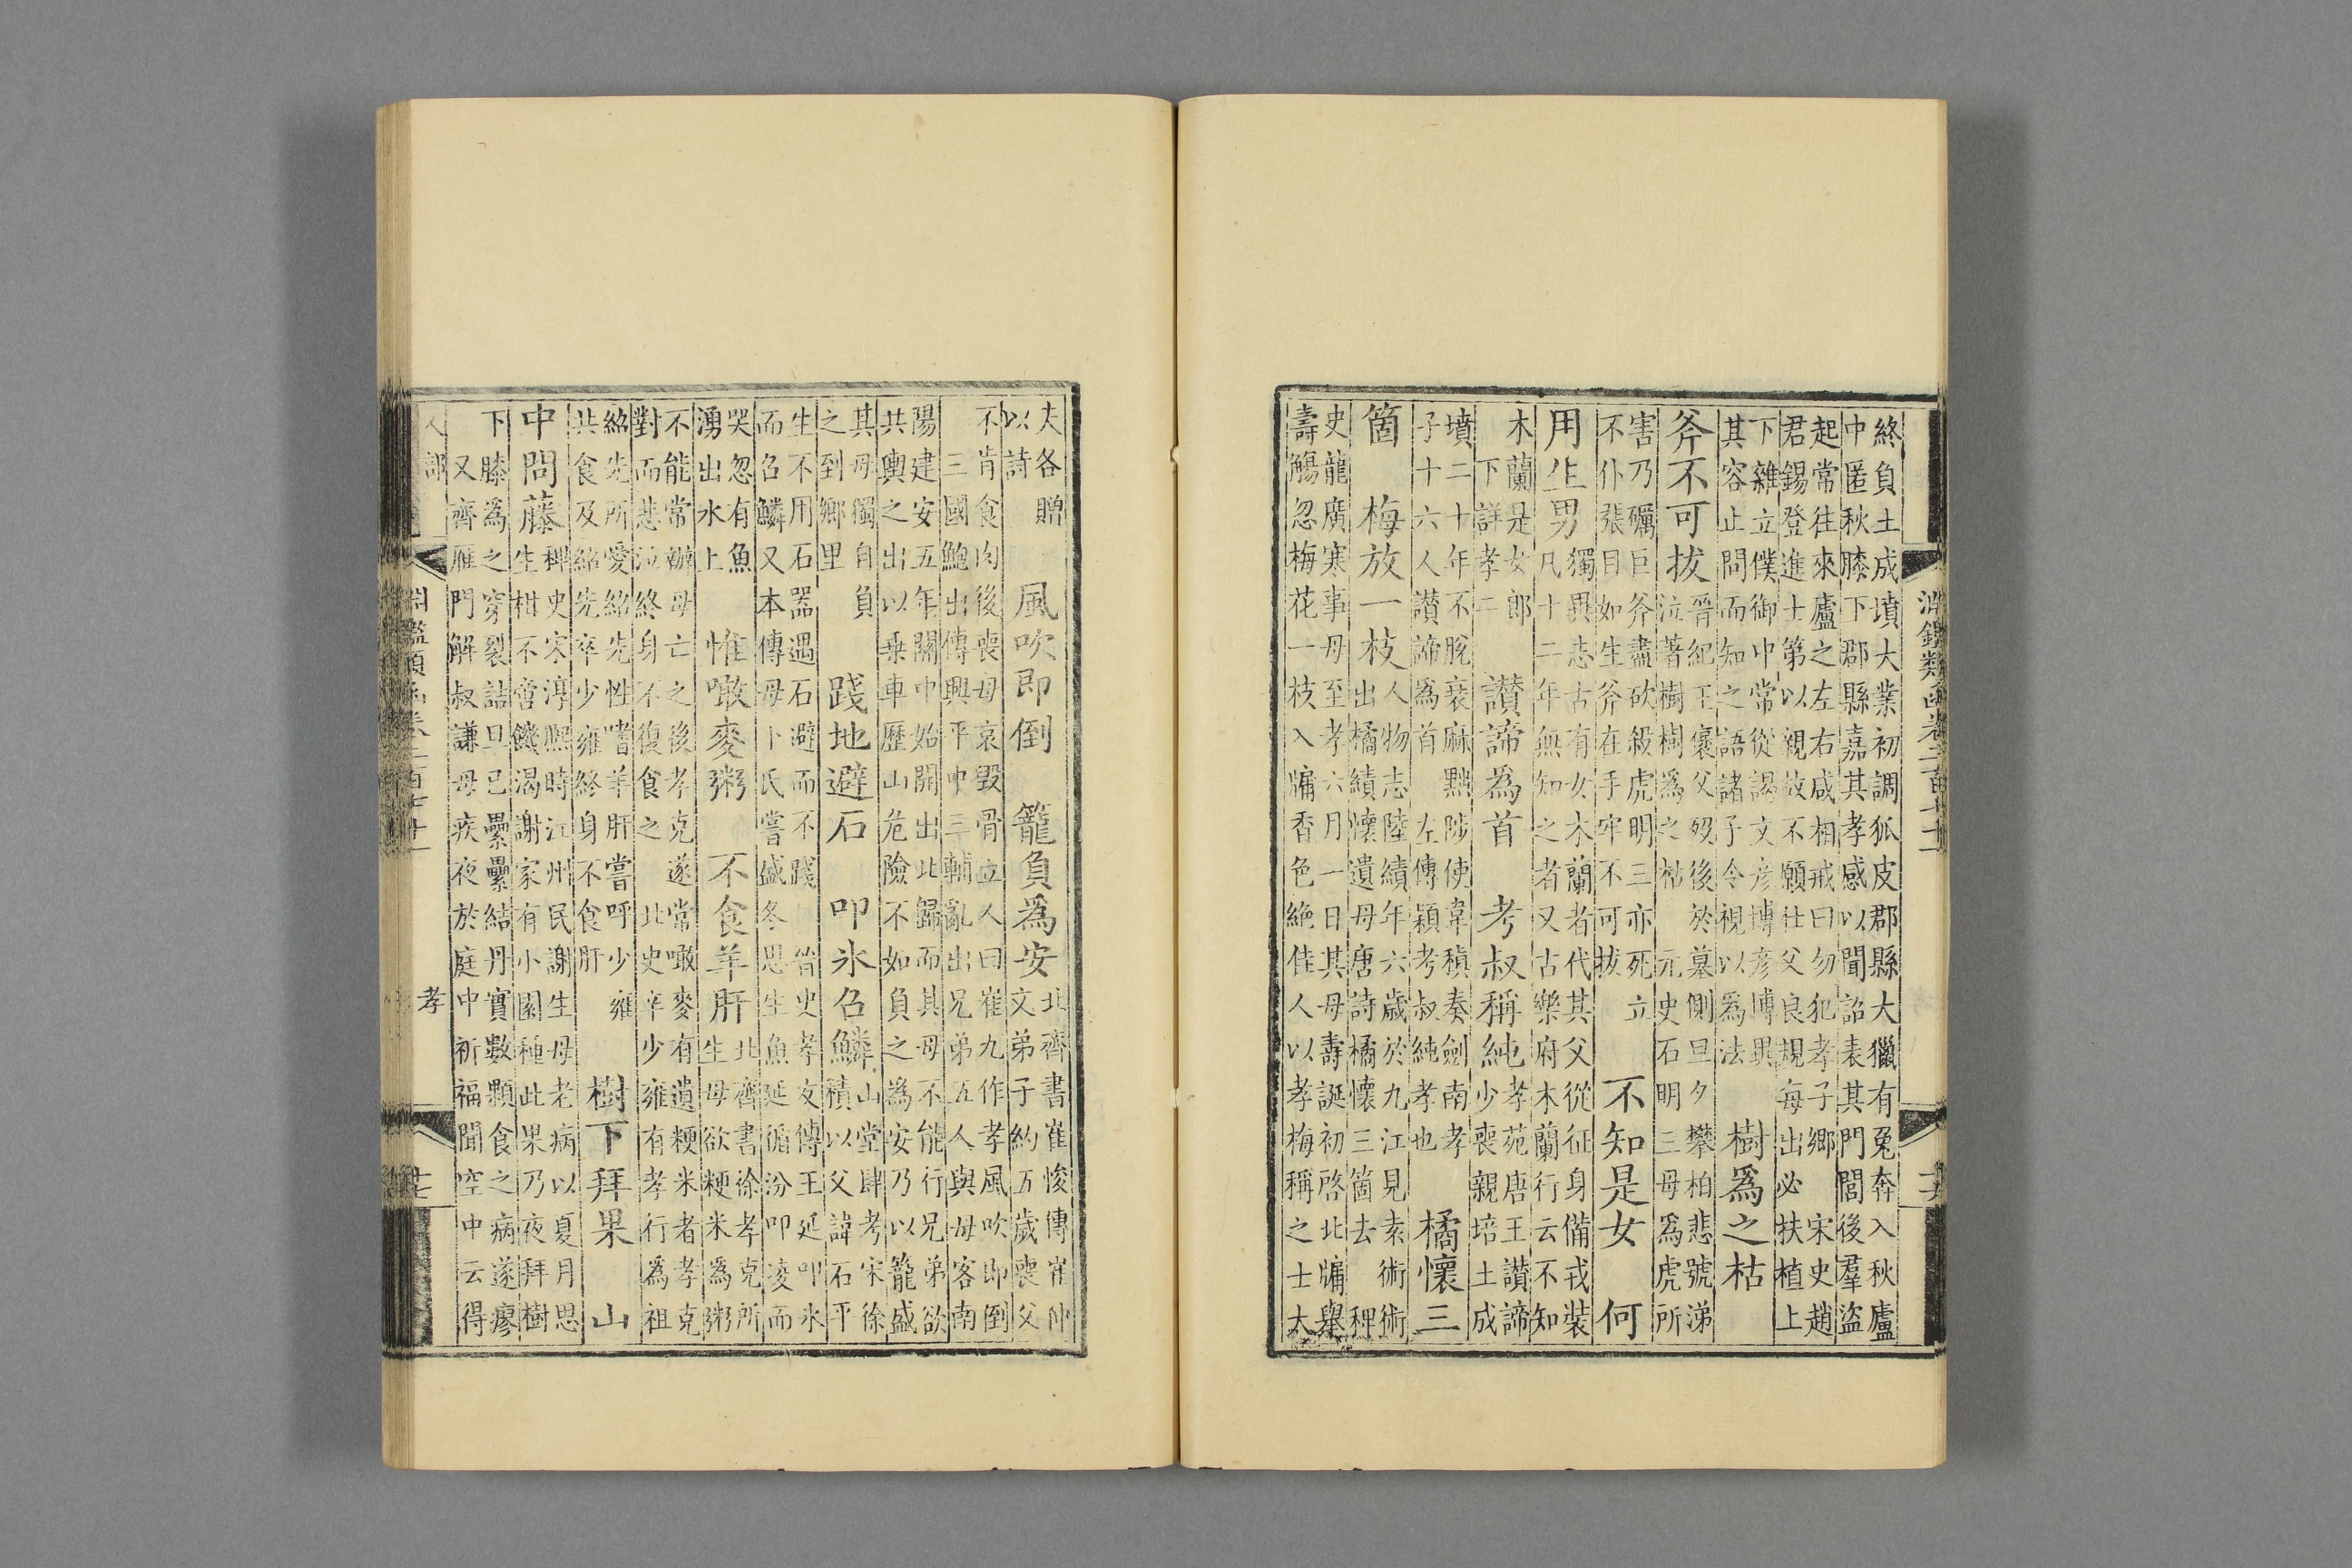 淵鑑類函卷二百七十一
終負土成墳大業初調狐皮郡縣大獵有兎奔入秋廬
中匿秋膝下郡縣嘉其孝感以聞詔表其門閭後羣盜
起常往來廬之左右咸相戒曰勿犯孝子鄉 宋史趙
君錫登進士第以親故不願仕父良規每出必扶植上
下雜立僕御中常從謁文彥博彥博異
其容止問而知之語諸子令視以爲法
樹爲之枯
晉紀王裒父歿後於墓側旦夕攀柏悲號涕
泣著樹樹爲之枯
斧不可拔
元史石明三母爲虎所
害乃礪巨斧盡砍殺虎明三亦死立
不仆張目如生斧在手牢不可拔
不知是女
何用生男
獨異志古有女木蘭者代其父從征身備戎裝
凡十二年無知之者又古樂府木蘭行云不知
木蘭是女郎
下詳孝二
讃諦爲首
考叔稱純
孝苑唐王讃諦
少喪親培土成
墳二十年不脫衰麻黜陟使韋稹奏劍南孝
子十六人讃諦爲首 左傳穎考叔純孝也
橘懷三箇
梅放一枝
人物志陸績年六歲於九江見袁術術
出橘績懷遺母唐詩橘懷三箇去 稗
史龍廣寒事母至孝六月一日其母壽誕初啓北牖舉
壽觴忽梅花一枝入牖香色絶佳人以孝梅稱之士大
夫各贈
以詩
風吹即倒
籠負爲安
北齊書崔㥄傳崔仲
文弟子約五歲喪父
不肯食肉後喪母哀毀骨立人曰崔九作孝風吹即倒
三國鮑出傳興平中三輔亂出兄弟五人與母客南
陽建安五年關中始開出北歸而其母不能行兄弟欲
共輿之出以乗車歷山危險不如負之爲安乃以籠盛
其母獨自負
之到鄉里
踐地避石
叩氷召鱗
山堂肆考宋徐
積以父諱石平
生不用石器遇石避而不踐
而召鱗又本傳母卜氏嘗盛冬思生魚延循汾叩凌而
晉史孝友傳王延叩氷
哭忽有魚
湧出水上
惟噉麥粥
不食羊肝
北齊書徐孝克所
生母欲粳米爲粥
不能常辦母亡之後孝克遂常噉麥有遺粳米者孝克
對而悲泣終身不復食之 北史辛少雍有孝行爲祖
紹先所愛紹先性嗜羊肝嘗呼少雍
共食及紹先卒少雍終身不食肝
樹下拜果
山中問藤
稗史宋淳熙時江州民謝生母老病以夏月思
生柑不啻饑渴謝家有小園種此果乃夜拜樹
下膝爲之穿裂詰旦已纍纍結丹實數顆食之病遂瘳
又齊雁門解叔謙母疾夜於庭中祈福聞空中云得
人部
淵鑑類函卷二百七十一
孝